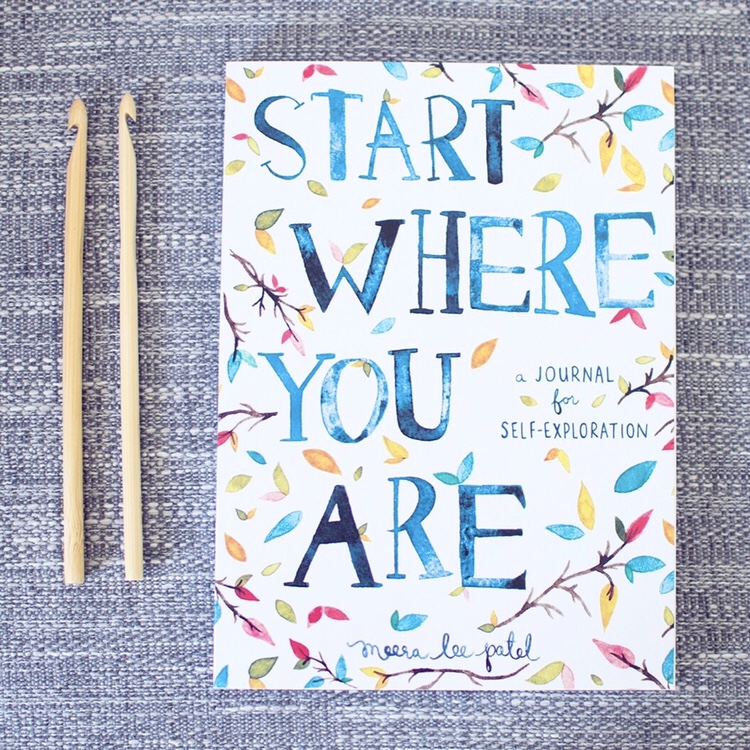 START
WHERE
YOU
a JOURNAL
for
SELF-EXPLORATION
ARE
meera lee patel